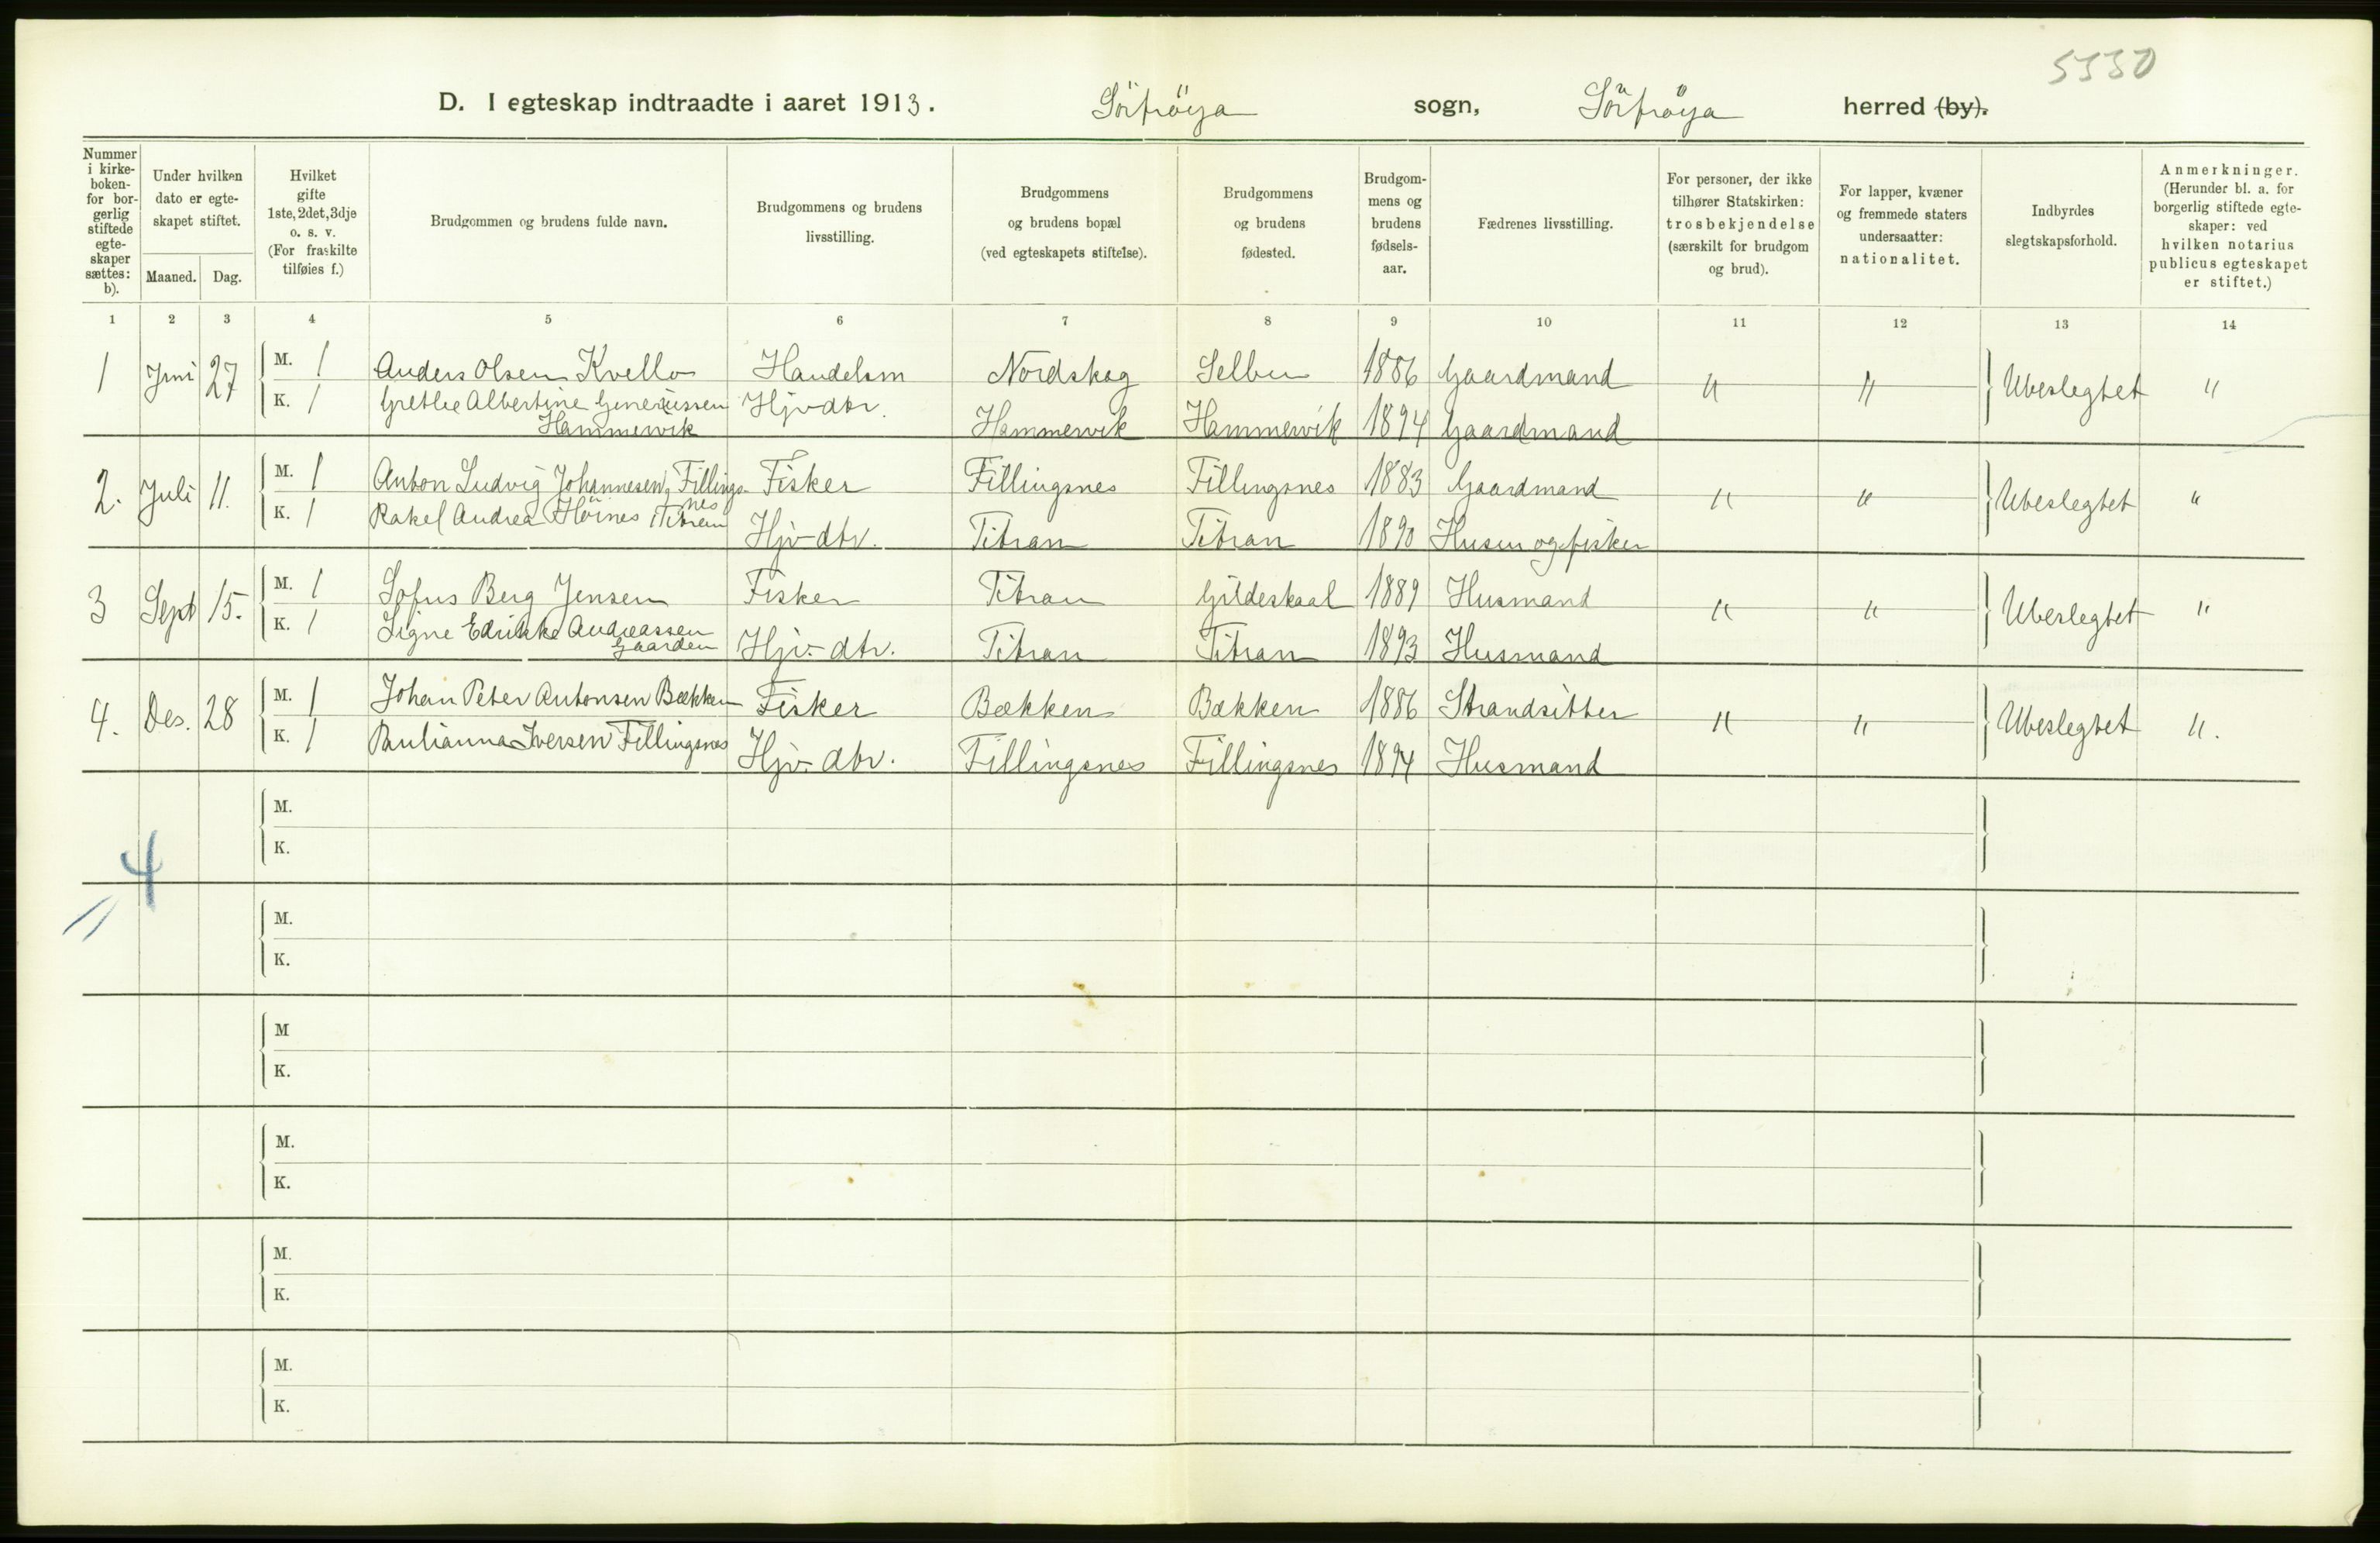 5330
D. I egteskap indtraadte i aaret 1913. Sörfröya sogn, Sörfröya herred (by).
Nummer i kirke-boken- for bor-gerlig stiftede egte-skaper sættes: b).
Under hvilken dato er egte-skapet stiftet.
Maaned. Dag.
Hvilket gifte 1ste, 2det, 3dje o. s. v. (For fraskilte tilføies f.)
Brudgommen og brudens fulde navn.
Brudgommens og brudens livsstilling.
Brudgommens og brudens bopæl (ved egteskapets stiftelse).
Brudgommens og brudens fødested.
Brudgom-mens og brudens fødsels-aar.
Fædrenes livsstilling.
For personer, der ikke tilhører Statskirken: trosbekjendelse (særskilt for brudgom og brud).
For lapper, kvæner og fremmede staters undersaatter: nationalitet.
Indbyrdes slegtskapsforhold.
Anmerkninger. (Herunder bl. a. for borgerlig stiftede egte-skaper: ved hvilken notarius publicus egteskapet er stiftet.)
1 2 3 4 5 6 7 8 9 10 11 12 13 14
1 Juni 27 M. 1 Anders Olsen Kvello Handelsm Nordskag Selbu 1886 Gaardmand " " Ubeslegtet "
K. 1 Grethe Albertine Hammervik Hjv dtr. Hammervik Hammervik 1894 Gaardmand
2. Juli 11. M. 1 Anton Ludvig Johannesen Fillings-nes Fisker Fillingsnes Fillingsnes 1883 Gaardmand " " Ubeslegtet "
K. 1 Rakel Andrea Höines Titran Hjv dtr. Titran Titran 1890 Husm og fisker
3 Sept 15. M. 1 Sofus Berg Jensen Fisker Titran Gildeskaal 1889 Husmand " " Ubeslegtet "
K. 1 Signe Edrikke Andreassen Gaarden Hjv. dtr. Titran Titran 1893 Husmand
4. Des. 28 M. 1 Johan Peter Antonsen Bækken Fisker Bækken Bækken 1886 Strandsitter " " Ubeslegtet ".
K. 1 Paulianna Iversen Fillingsnes Hjv. dtr. Fillingsnes Fillingsnes 1894 Husmand
M.
K.
4
M.
K.
M
K.
M.
K.
M.
K.
M.
K.